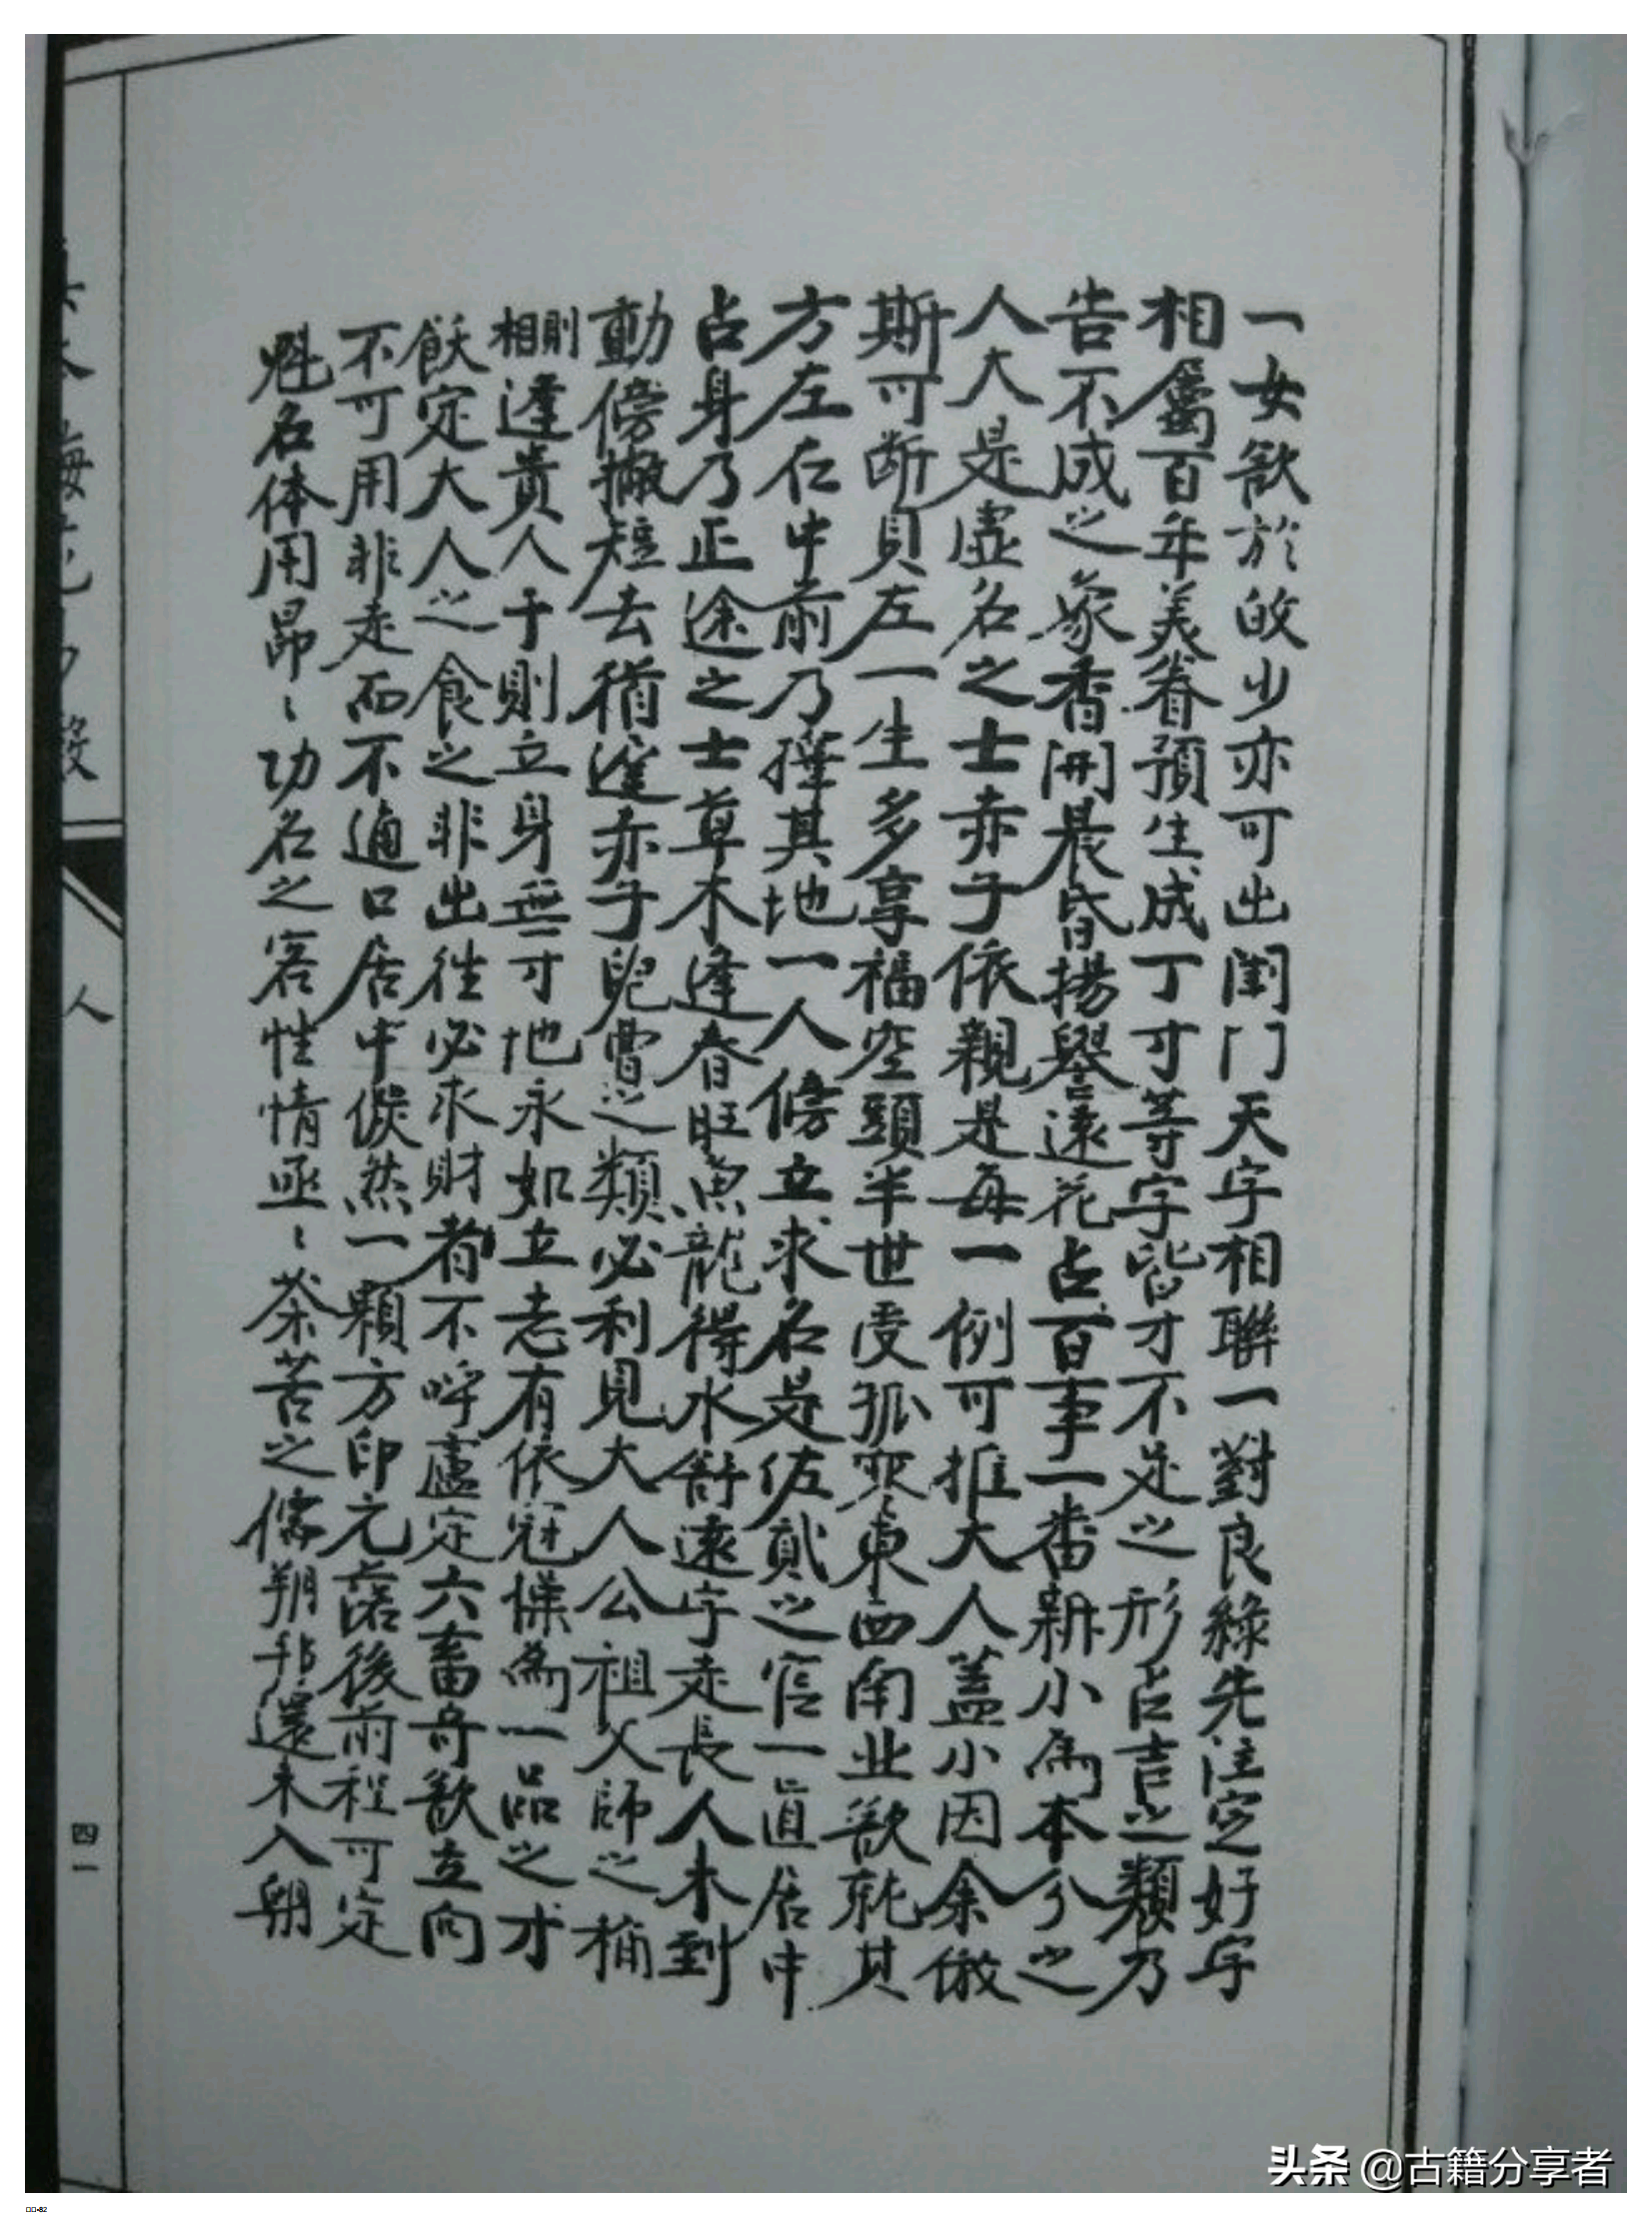 一女欲於的少亦可出閨门天字相聯一對良緣先注定好字
相屬百年美眷預生成丁寸等字皆才不足之形占吉之類乃
告不成之象香開晨昏揚譽遠花占百事一番新小為本分之
人大是虛名之士赤子依親是每一例可推大人蓋小因余做
斯可断貝左一生多享福空頭半世受孤寒東西南业欲耗其
方左右中前乃擇其地一人傍立求名是佐貳之官一直居中
占身乃正途之士草木逢春旺魚龍得水舒遠字走長人木到
動傍撇短去猶達亦子兒曹之類必利見大人公祖父師之稱
相則逢貴人于則立身無寸地永如立志有依冠儝為一品之才
飫定大人之食之非出往必求財者不呼盧定六畜奇欲立向
不可用非走而不適口居中儼然一顆方印元落後前程可定
魁名体用昂丶功名之客性情亟丶茶苦之儒朔邦還未入朝
人
四一
头条 @古籍分享者